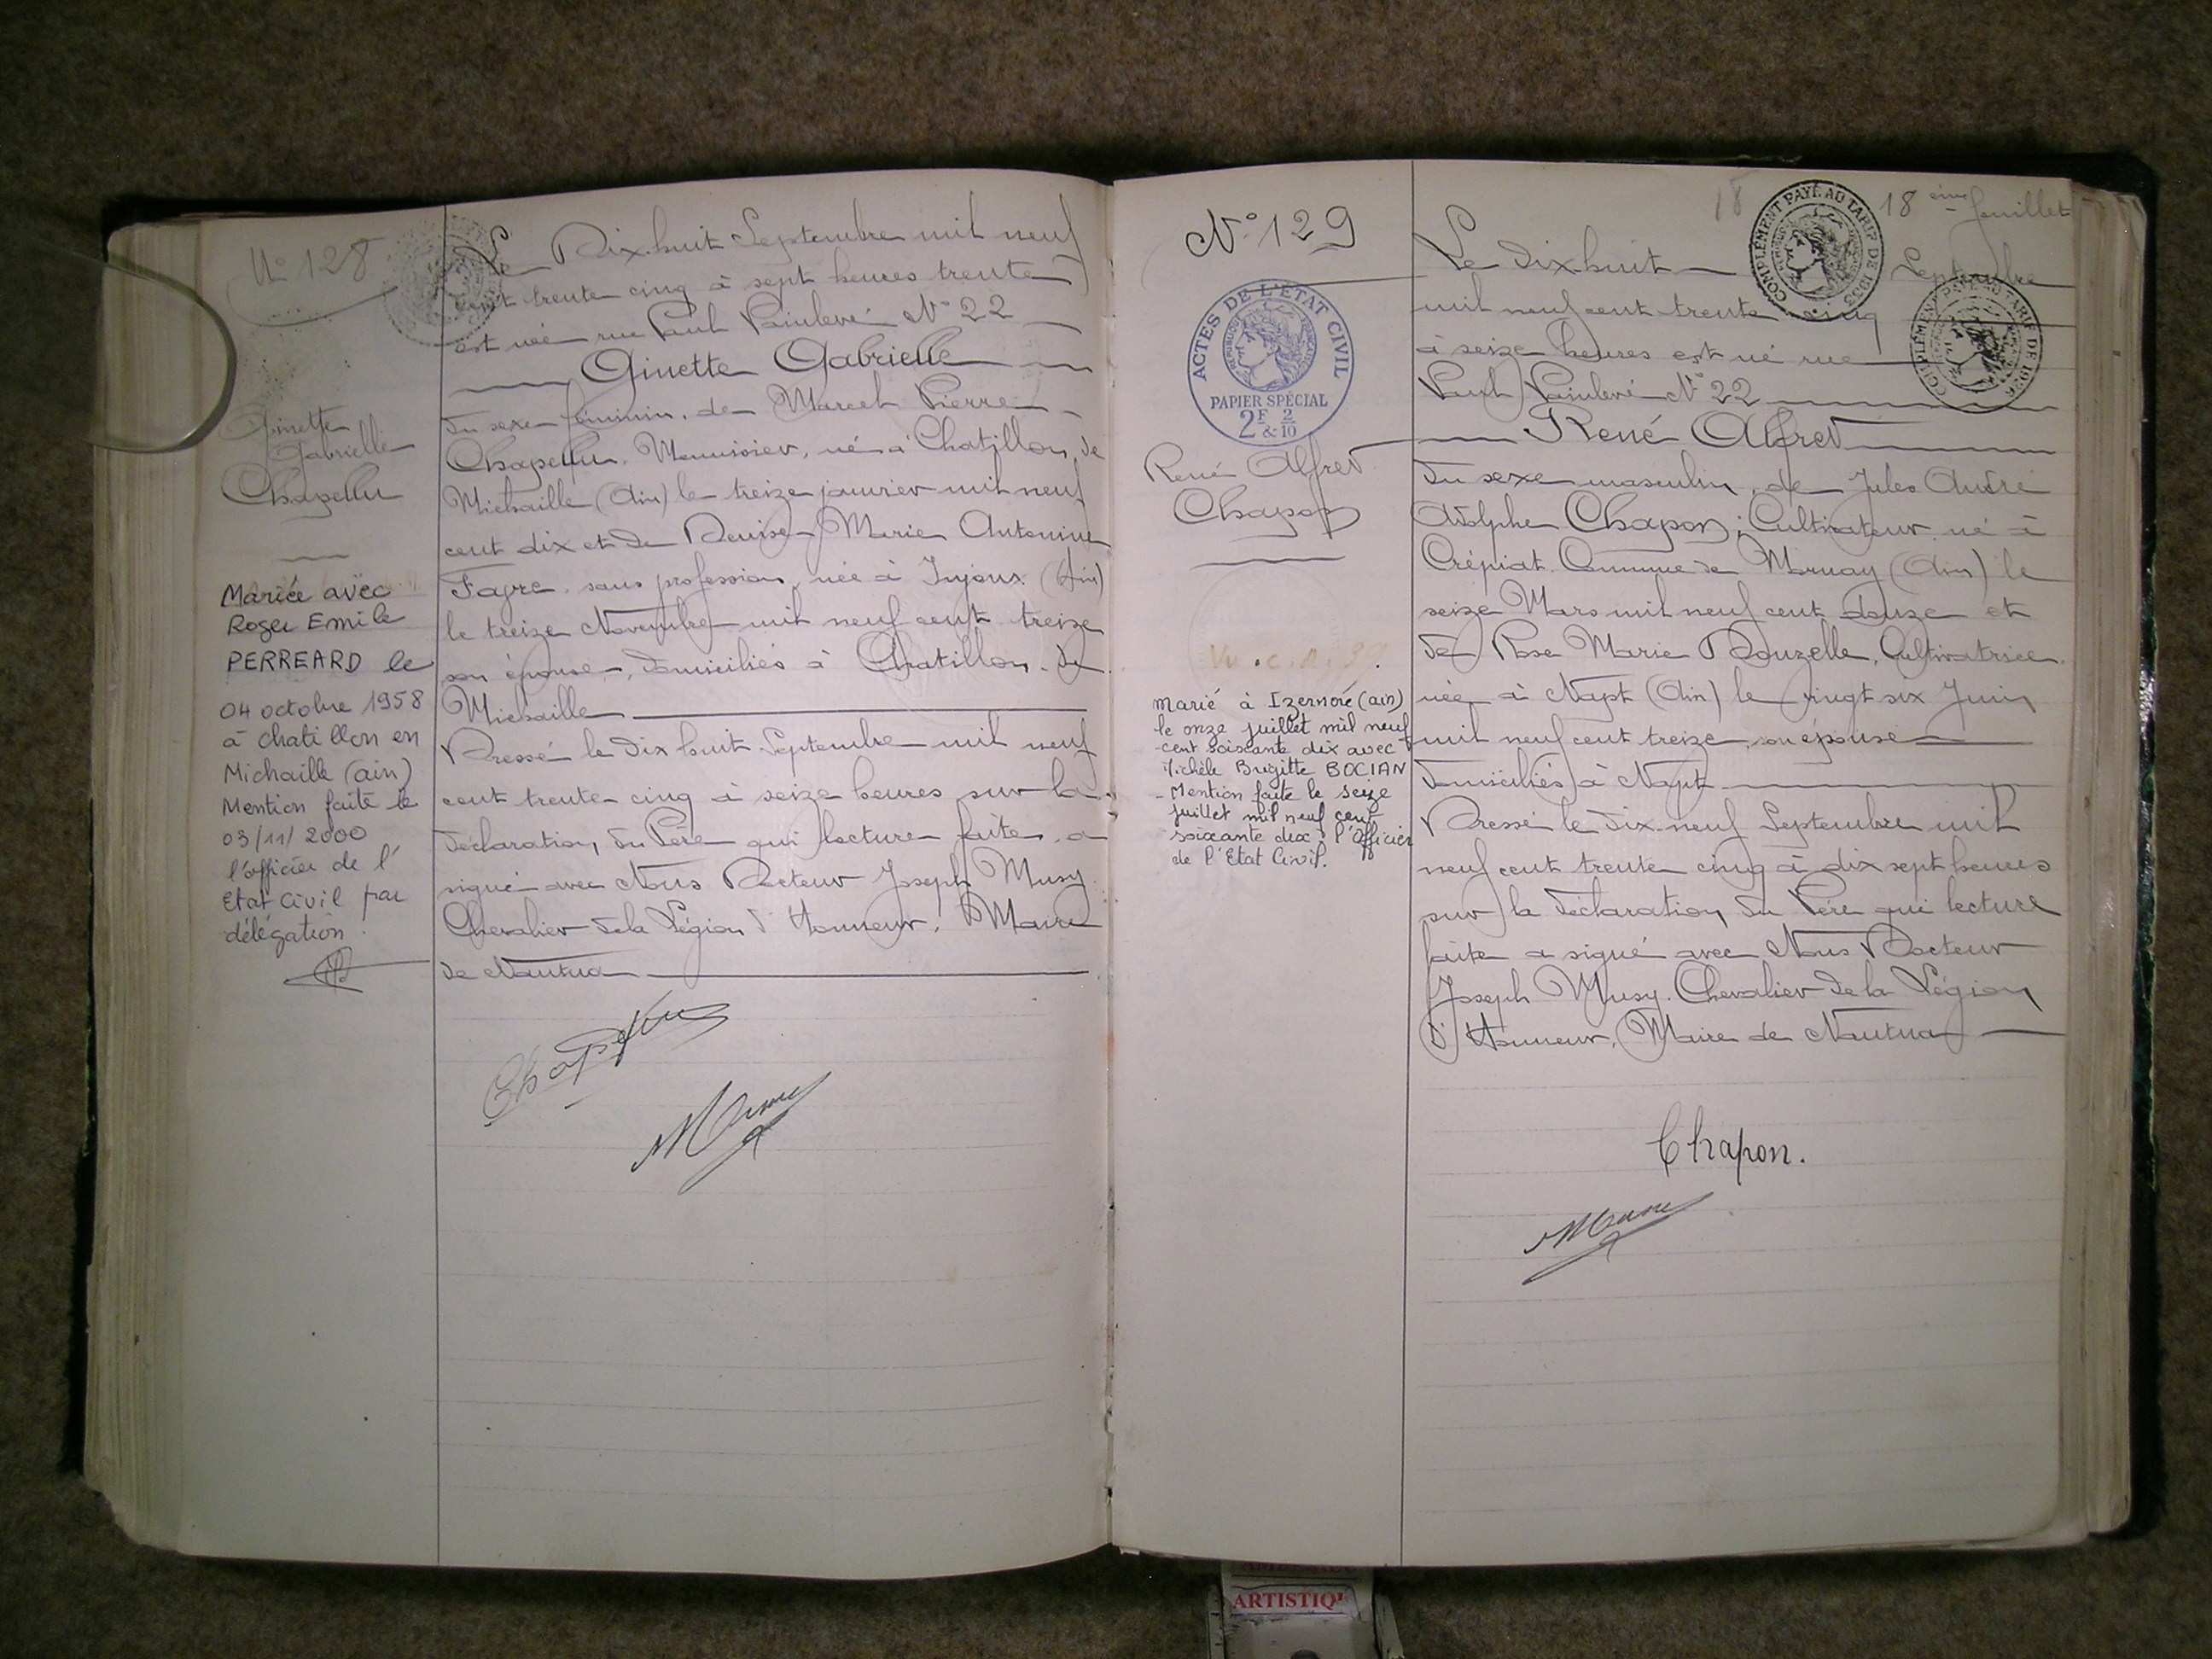 N° 128
Ginette
Gabrielle
Chapellu
Mariée avec
Roger Emile
PERREARD le
04 octobre 1958
à chatillon en
Michaille (ain)
Mention faite le
03/11/2000
l'officier de l'
Etat Civil par
délégation.
Le Dix huit Septembre mil neuf
cent trente cinq à sept heures trente
est née rue Paul Painlevé N° 22
Ginette Gabrielle
du sexe féminin, de Marcel Pierre
Chapellu, Menuisier, né à Chatillon de
Michaille (Ain) le treize janvier mil neuf
cent dix et de Denise Marie Antonine
Favre, sans profession, née à Injoux (Ain)
le treize Novembre mil neuf cent treize
son épouse, domiciliés à Chatillon de
Michaille
Dressé le dix huit Septembre mil neuf
cent trente cinq à seize heures sur la
déclaration du Père qui lecture faite, a
signé avec Nous Docteur Joseph Musy
Chevalier de la Légion d'Honneur, Maire
de Nantua
Chapellu
Musy
N° 129
ACTES DE L'ÉTAT CIVIL
PAPIER SPÉCIAL
2F & 2/10
René Alfred
Chapon
Marié à Izernore (ain)
le onze juillet mil neuf
cent soixante dix avec
Michèle Brigitte BOCIAN
- Mention faite le seize
juillet mil neuf cent
soixante dix l'Officier
de l'Etat Civil.
18
18 ème feuillet
COMPLÉMENT PAYÉ AU TARIF DE 1933
Le dix huit Septembre
mil neuf cent trente cinq
à seize heures est né rue
Paul Painlevé N° 22
René Alfred
du sexe masculin, de Jules André
Adolphe Chapon, Cultivateur né à
Crépiat Commune de Mornay (Ain) le
seize Mars mil neuf cent douze et
de Rose Marie Douzelle, Cultivatrice
née à Napt (Ain) le vingt six Juin
mil neuf cent treize, son épouse
domiciliés à Napt
Dressé le dix neuf Septembre mil
neuf cent trente cinq à dix sept heures
sur la déclaration du Père qui lecture
faite a signé avec Nous Docteur
Joseph Musy, Chevalier de la Légion
d'Honneur, Maire de Nantua
Chapon.
Musy
ARTISTIQU